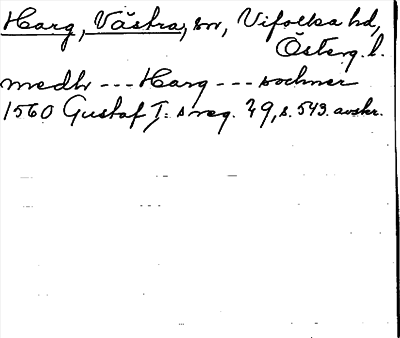 Harg, Västra, sn, Vifolka hd,
Österg. l.
medh --- Harg --- sochner
1560 Gustaf I:s reg. 29, s. 543. avskr.